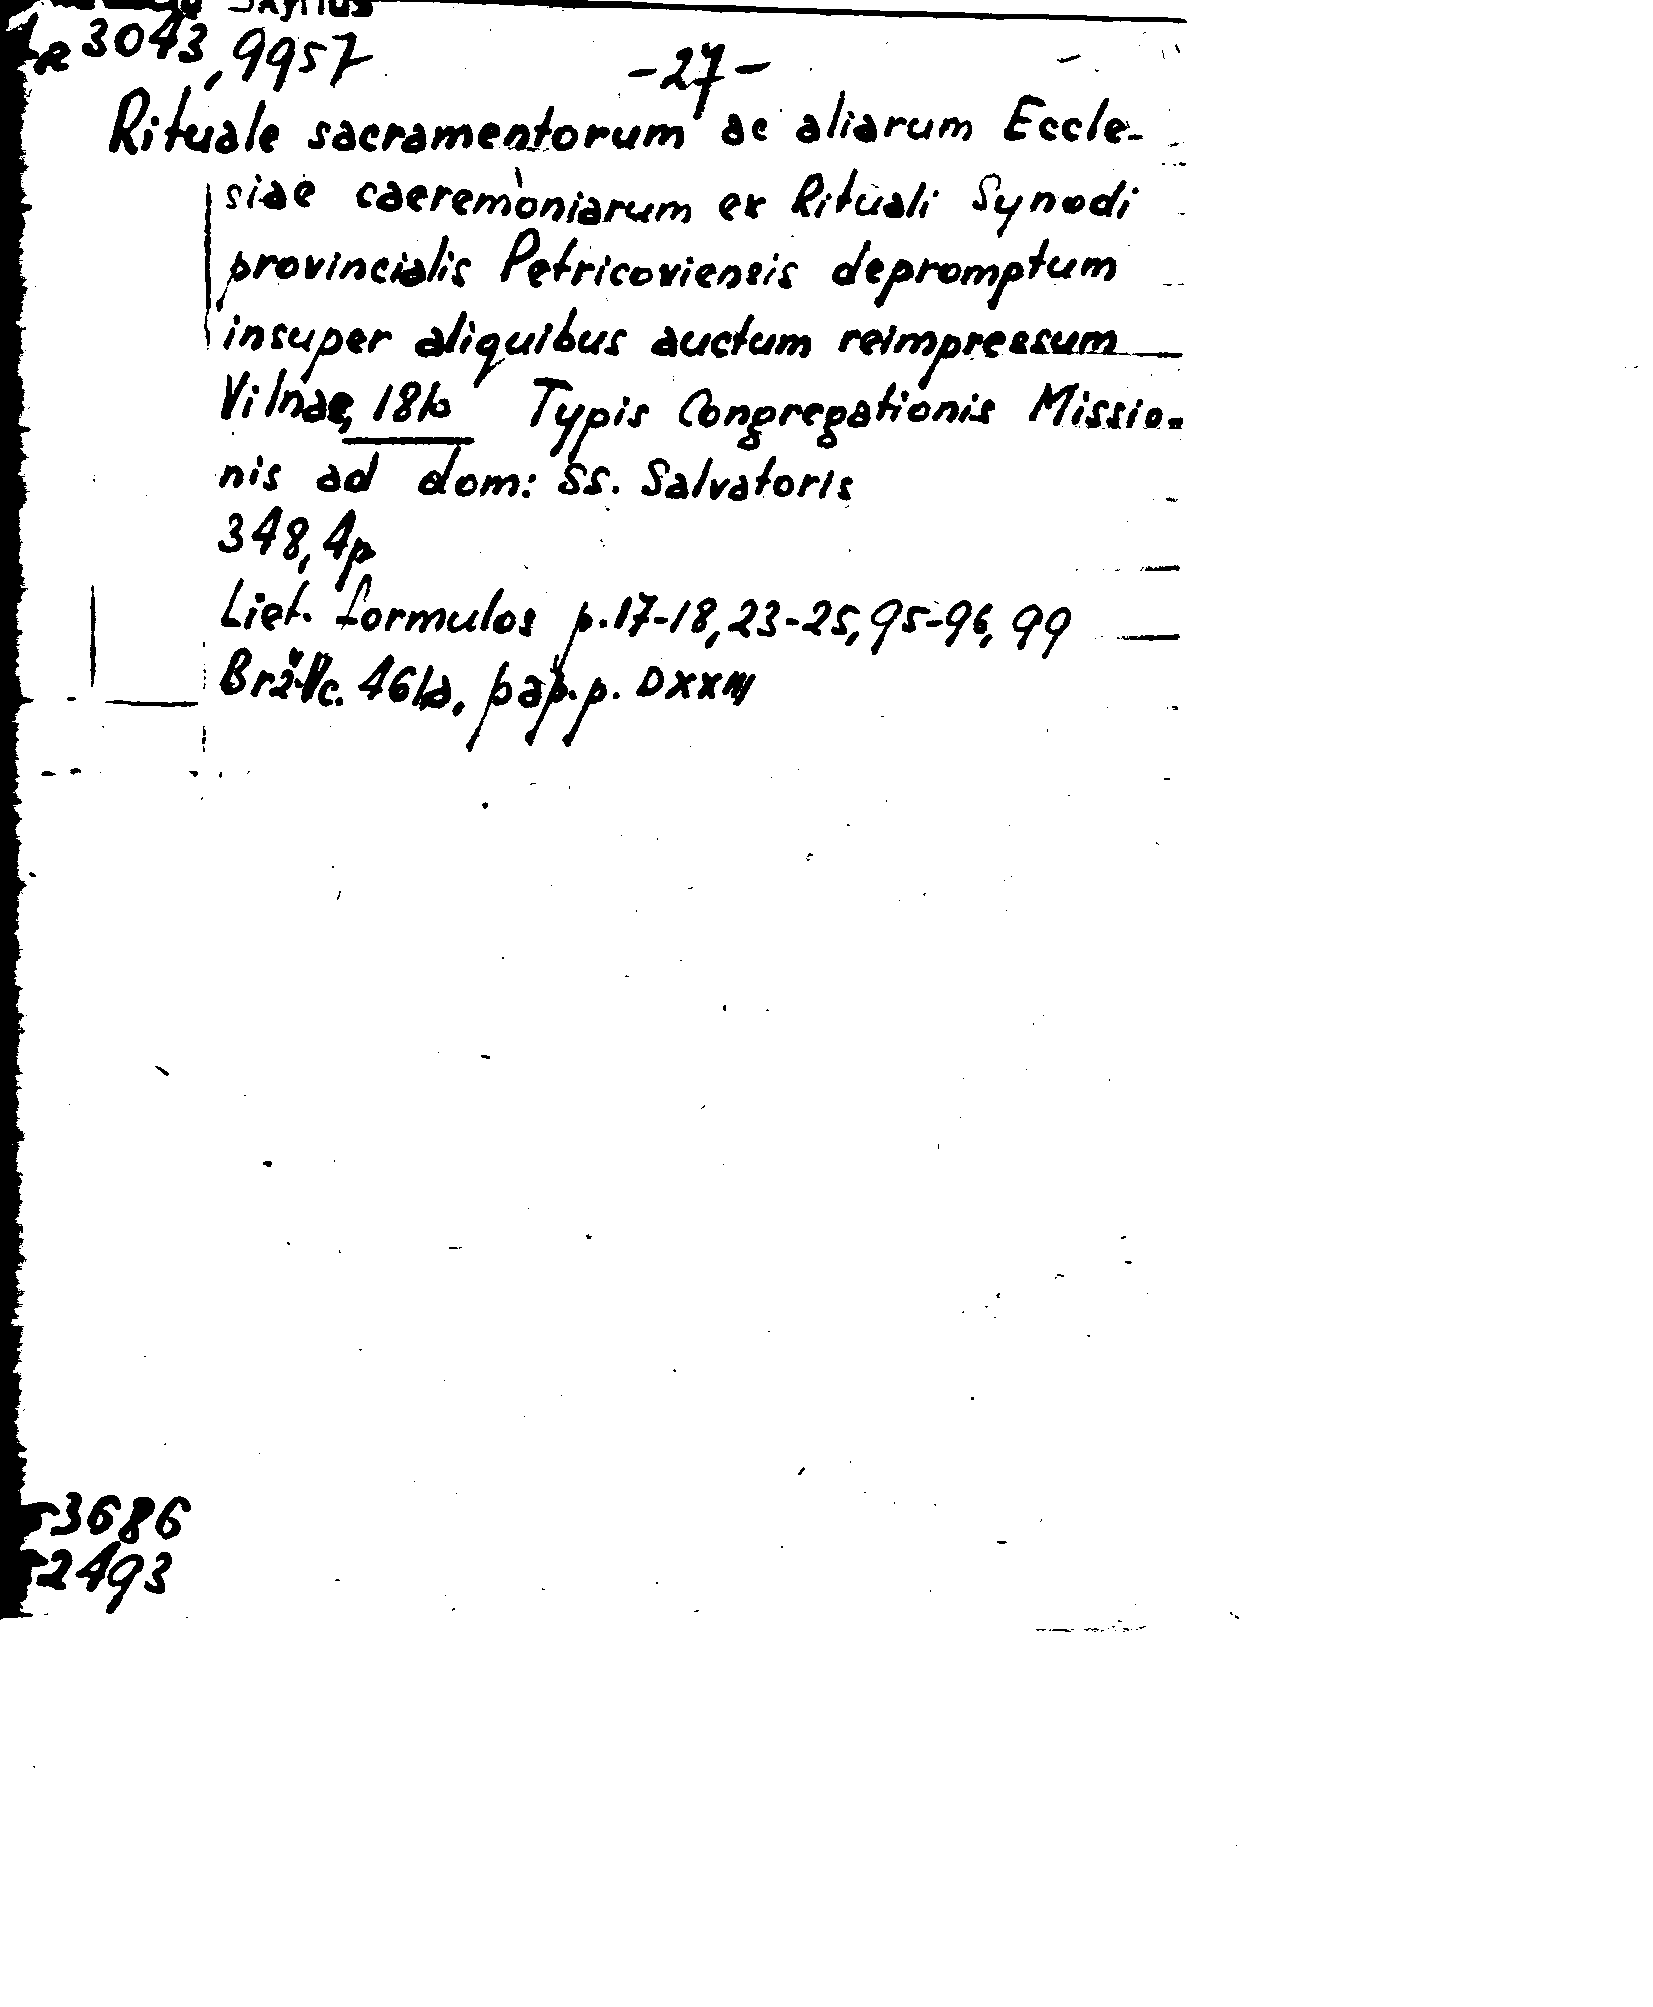 Skyrius
3043, 9957
-27-
Rituale sacramentorum ac aliarum Eccle-
siae caeremoniarum ex Rituali Synodi
provincialis Petricoviensis depromptum
insuper aliquibus auctum reimpressum
Vilnae, 1810 Typis Congregationis Missio-
nis ad dom: SS. Salvatoris
348, 4p
Liet. formulos p. 17-18, 23-25, 95-96, 99
461a, pap. p. DXXIII
-3686
-2493